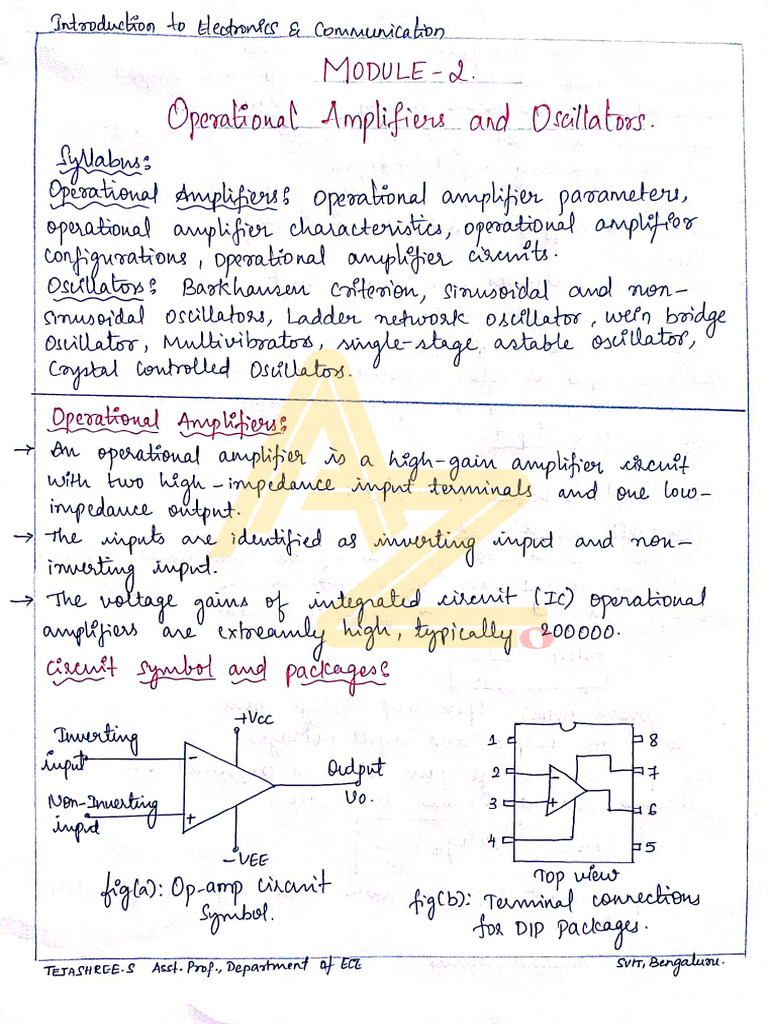 Introduction to Electronics & Communication
MODULE-2.
Operational Amplifiers and Oscillators.
Syllabus:
Operational Amplifiers: Operational amplifier parameters,
operational amplifier characteristics, operational amplifier
configurations, Operational amplifier circuits.
Oscillators: Barkhausen Criterion, sinusoidal and non-
sinusoidal oscillators, Ladder network oscillator, wein bridge
oscillator, Multivibrators, single-stage astable oscillator,
Crystal Controlled Oscillators.
Operational Amplifiers:
→ An operational amplifier is a high-gain amplifier circuit
with two high-impedance input terminals and one low-
impedance output.
→ The inputs are identified as inverting input and non-
inverting input.
→ The voltage gains of integrated circuit (IC) operational
amplifiers are extreamly high, typically 200000.
Circuit symbol and packages:
+Vcc
Inverting
input
-
Output
Vo.
Non-Inverting
input
+
-VEE
fig(a): Op-amp circuit
Symbol.
1
8
2
-
7
3
+
6
4
5
Top view
fig(b): Terminal connections
for DIP packages.
TEJASHREE.S Asst. Prof., Department of ECE
SVIT, Bengaluru.
AZ